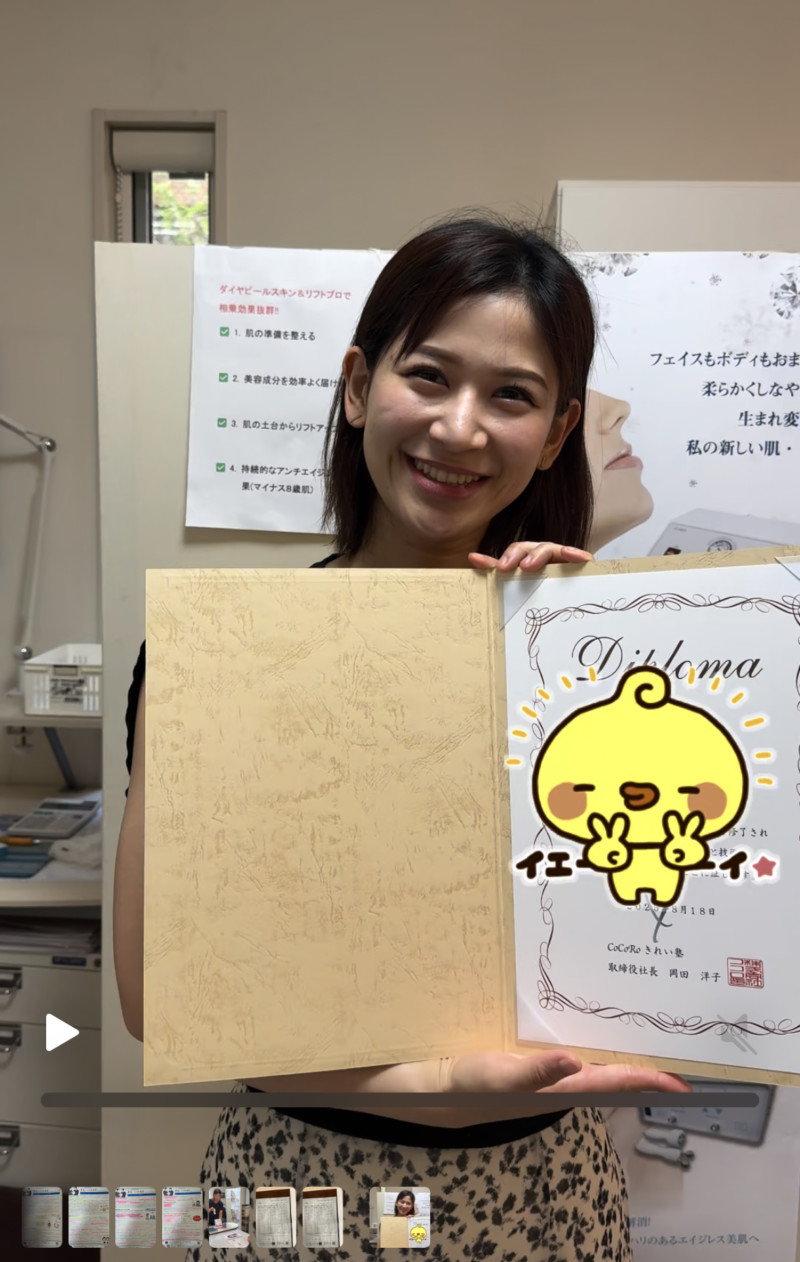 ダイヤピールスキン&リフトプロで
相乗効果抜群!!
1. 肌の準備を整える
2. 美容成分を効率よく届け
3. 肌の土台からリフトアッ
4. 持続的なアンチエイジ
果(マイナス8歳肌)
フェイスもボディもおま
柔らかくしなや
生まれ変
私の新しい肌・
Diploma
修了され
イエーイ
8月18日
CoCoRoきれい塾
取締役社長 岡田 洋子
ハリのあるエイジレス美肌へ